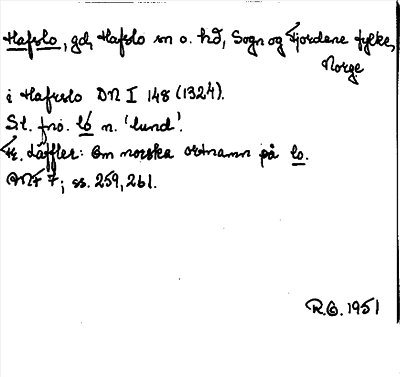 Hafslo, gd, Hafslo sn o. hd, Sogn og Fjordene fylke,
Norge
i Hafrslo DN I 148 (1324).
St. fno. ló n. 'lund'.
Fr. Läffler: Om norska ortnamn på lo.
ANF 7; ss. 259, 261.
R.O. 1951